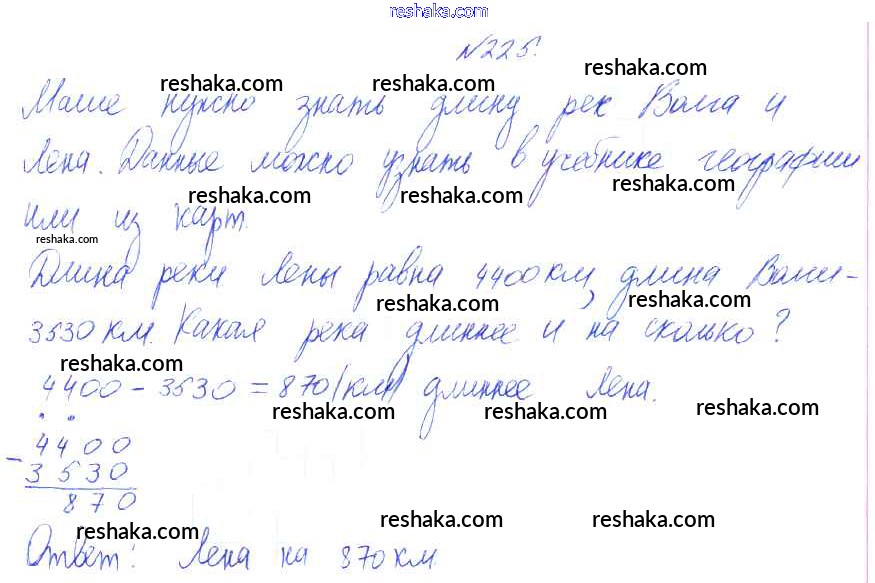 reshaka.com
№225.
reshaka.com reshaka.com reshaka.com
Маше нужно знать длину рек Волга и
Лена. Данные можно узнать в учебнике географии
reshaka.com reshaka.com reshaka.com
или из карт.
reshaka.com
Длина реки Лены равна 4400 км, длина Волги-
reshaka.com reshaka.com
3530 км. Какая река длиннее и на сколько?
reshaka.com
4400 - 3530 = 870 (км) длиннее Лена.
reshaka.com reshaka.com reshaka.com
- 4400
3530
870
reshaka.com reshaka.com reshaka.com
Ответ: Лена на 870 км.